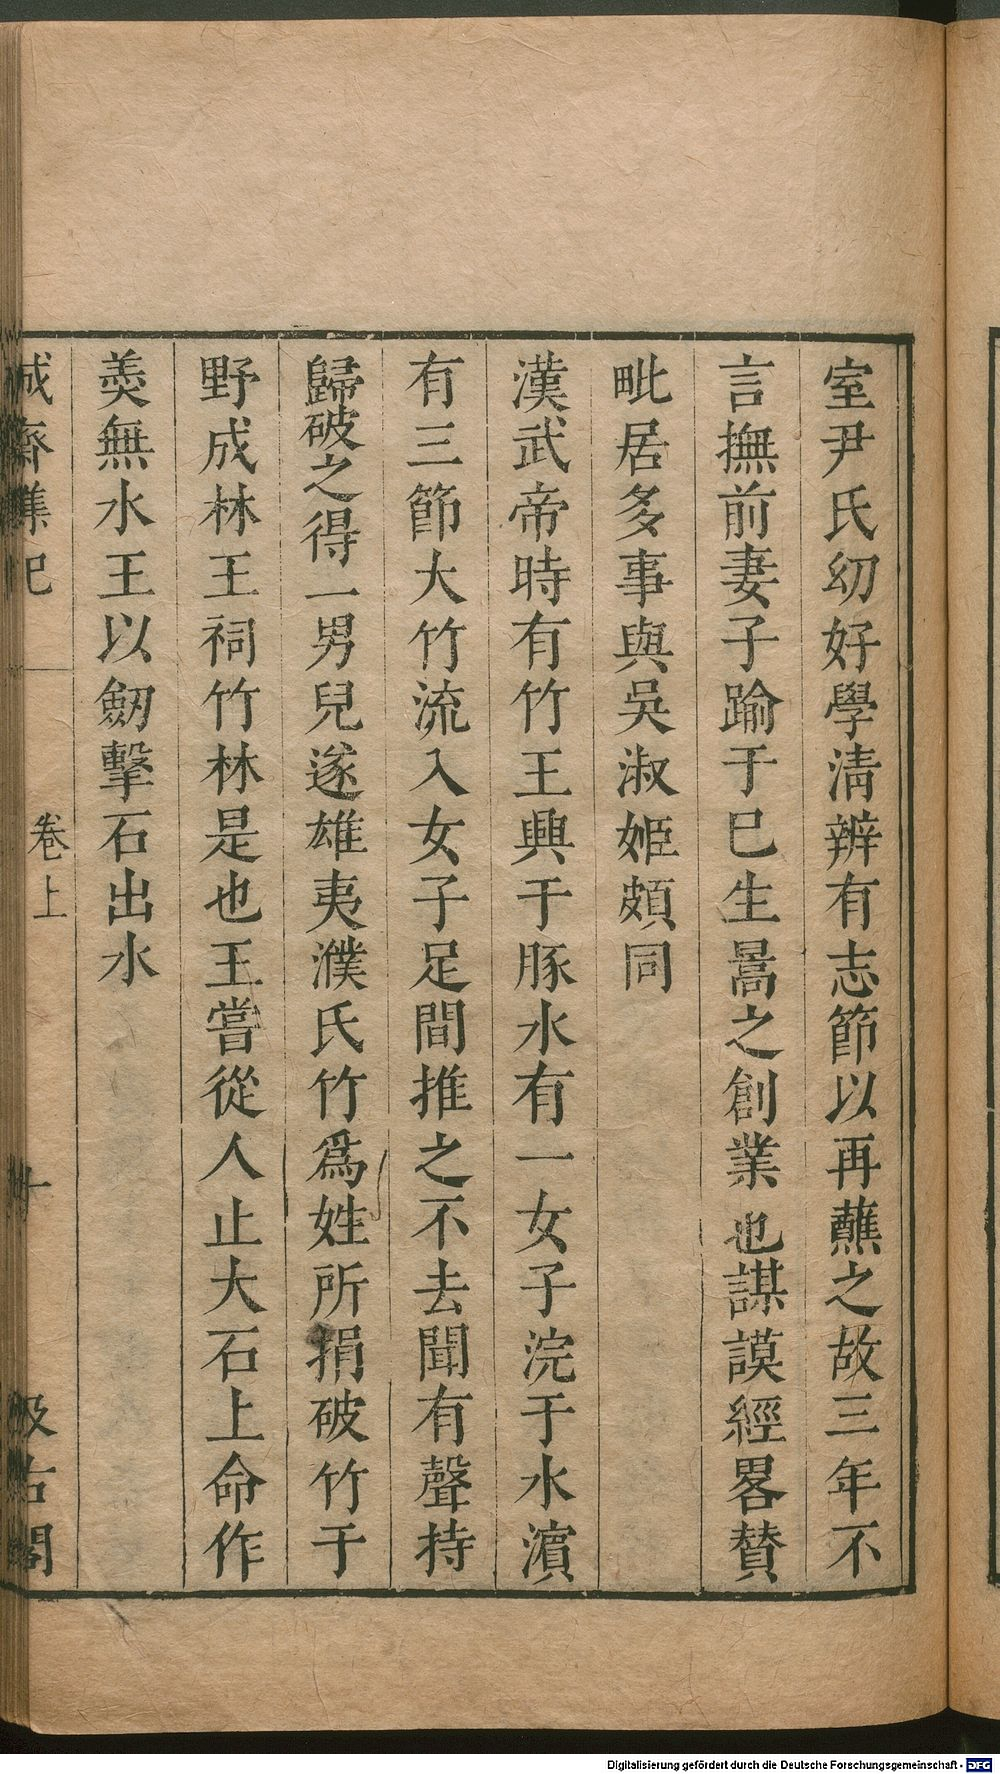 室尹氏幼好學清辨有志節以再蘸之故三年不
言撫前妻子踰于巳生暠之創業也謀謨經畧賛
毗居多事與吳淑姬頗同
漢武帝時有竹王興于豚水有一女子浣于水濵
有三節大竹流入女子足間推之不去聞有聲持
歸破之得一男兒遂雄夷濮氏竹爲姓所捐破竹于
野成林王祠竹林是也王嘗從人止大石上命作
羮無水王以劒擊石出水
誠齋雜記
卷上
十
汲古閣
Digitalisierung gefördert durch die Deutsche Forschungsgemeinschaft - DFG